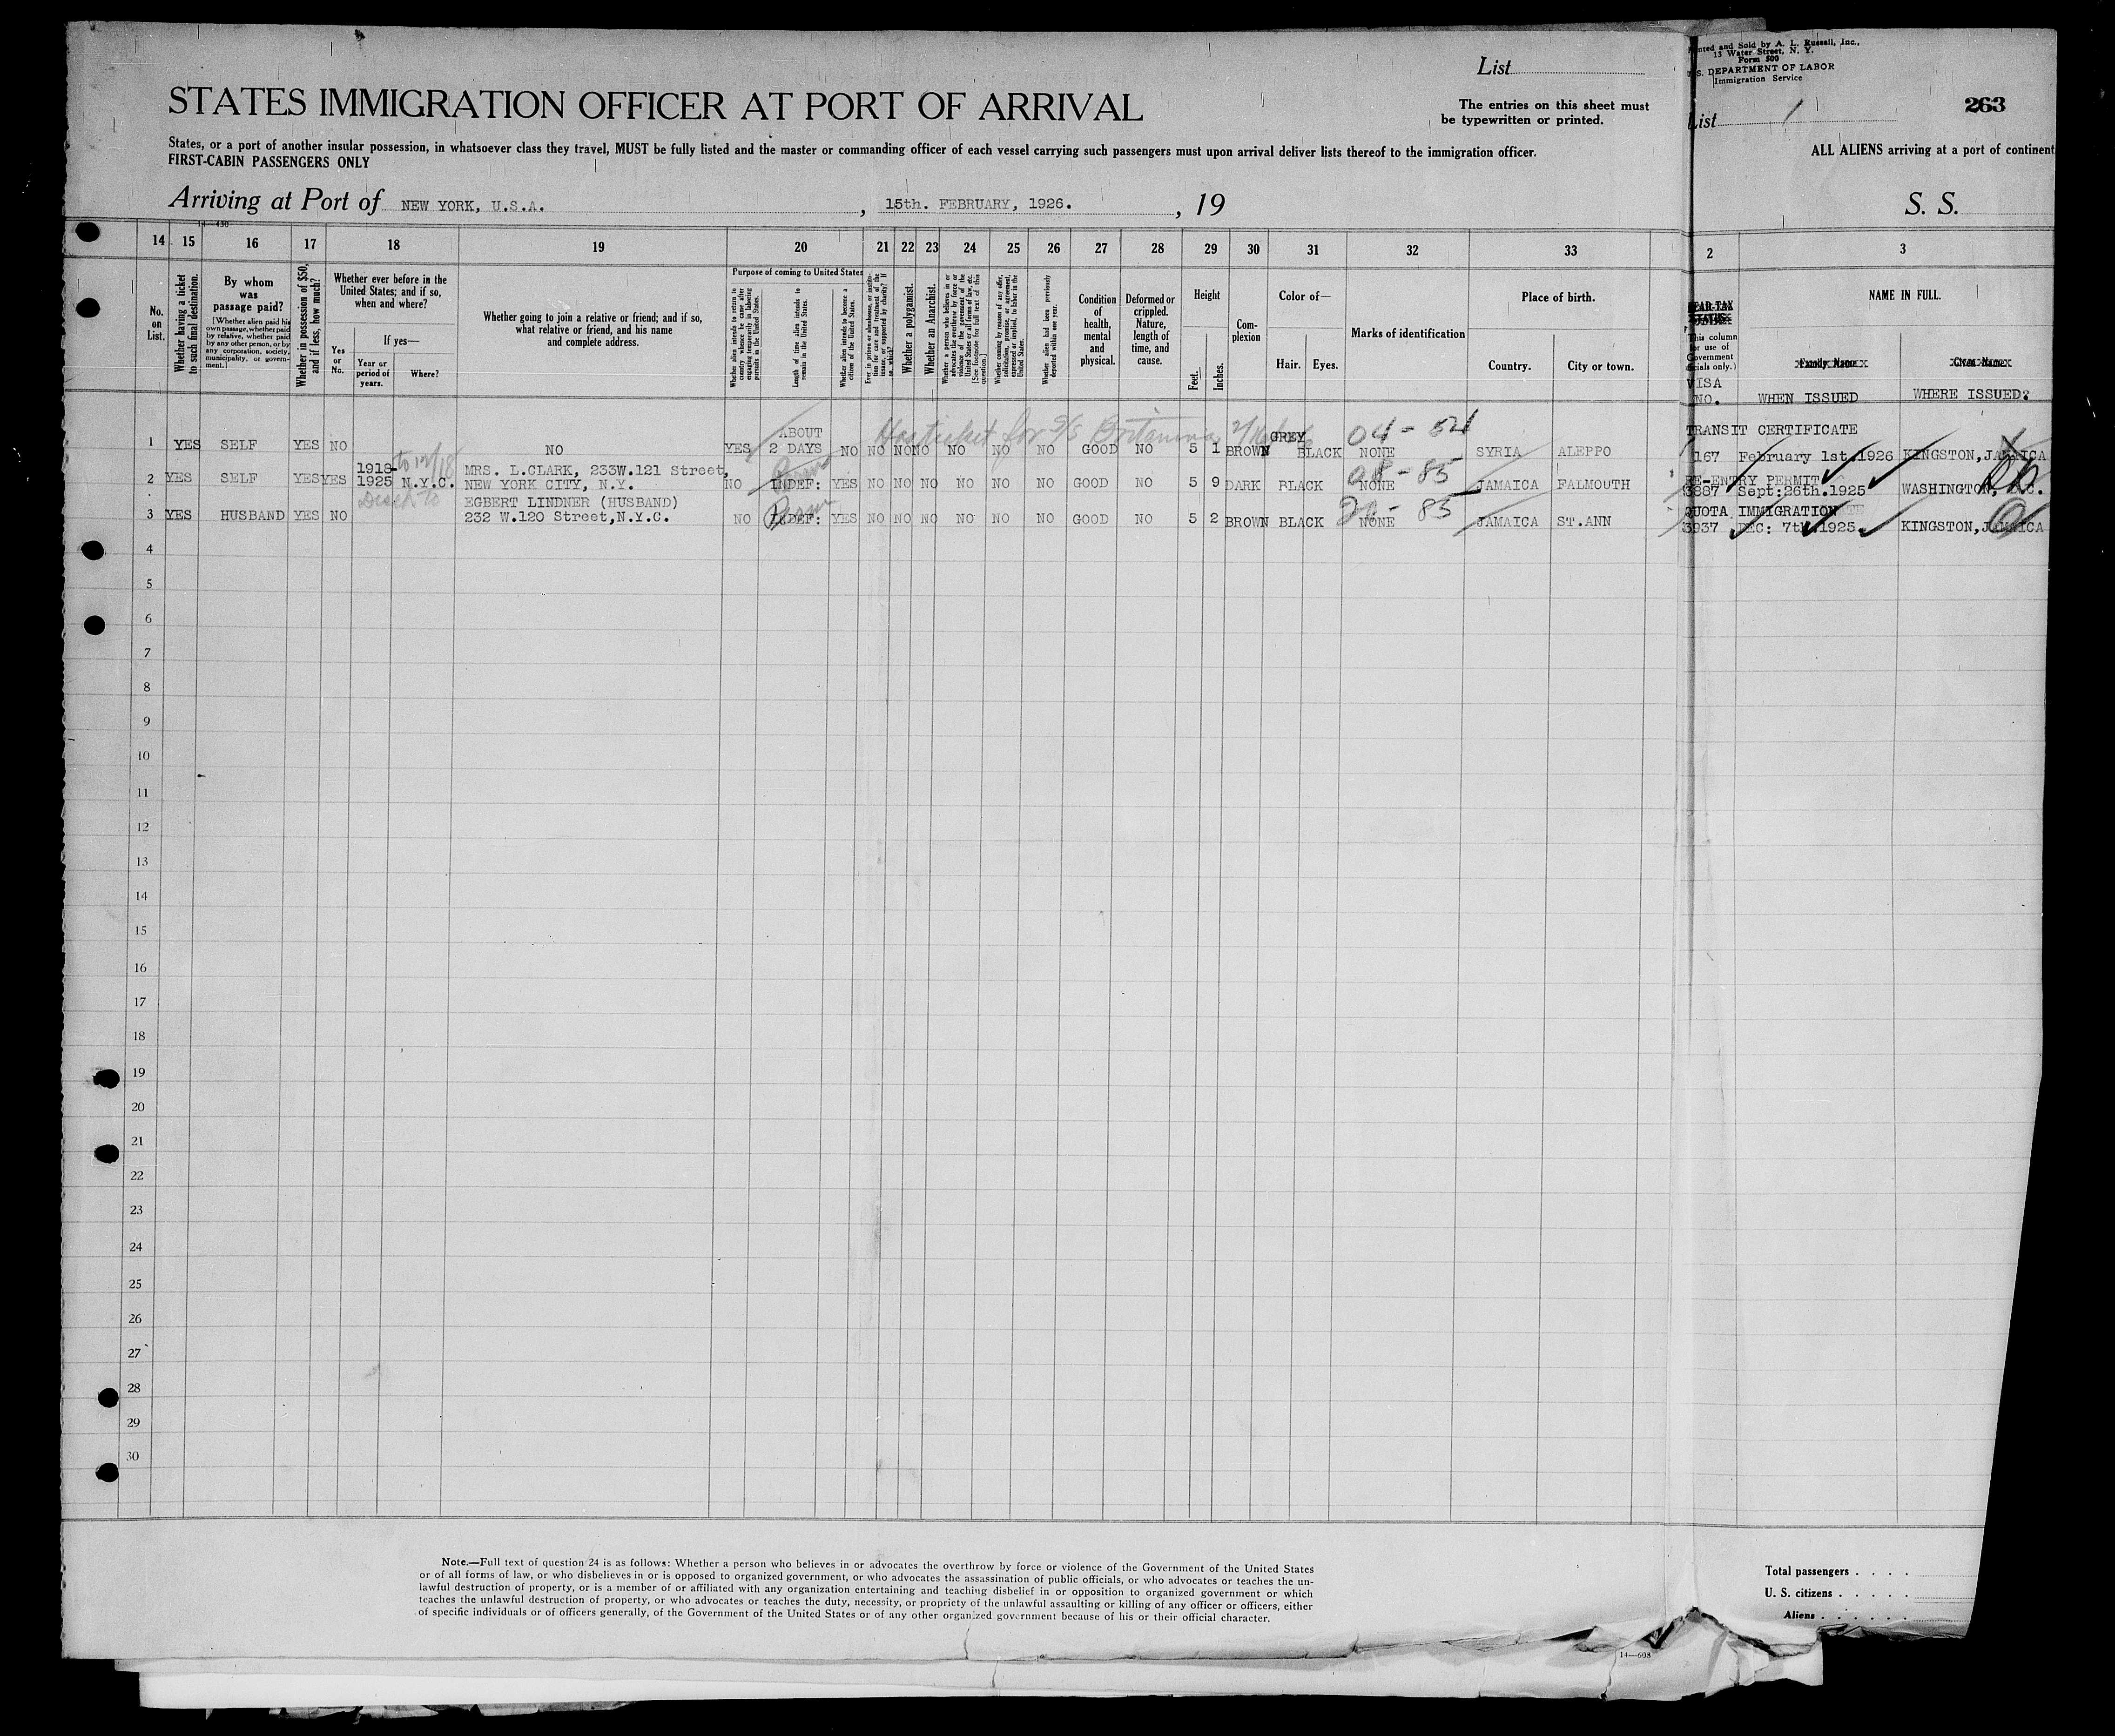 List
STATES IMMIGRATION OFFICER AT PORT OF ARRIVAL
The entries on this sheet must
be typewritten or printed.
States, or a port of another insular possession, in whatsoever class they travel, MUST be fully listed and the master or commanding officer of each vessel carrying such passengers must upon arrival deliver lists thereof to the immigration officer.
FIRST-CABIN PASSENGERS ONLY
Arriving at Port of NEW YORK, U.S.A. , 15th. FEBRUARY, 1926. , 19
14 15 16 17 18 19 20 21 22 23 24 25 26 27 28 29 30 31 32 33
No. on List.
Whether having a ticket to such final destination.
By whom was passage paid?
[Whether alien paid his own passage, whether paid by relative, whether paid by any other person, or by any corporation, society, municipality, or government.]
Whether in possession of $50, and if less, how much?
Whether ever before in the United States; and if so, when and where?
Yes or No.
If yes—
Year or period of years.
Where?
Whether going to join a relative or friend; and if so, what relative or friend, and his name and complete address.
Purpose of coming to United States
Length of time alien intends to remain in the United States.
Whether alien intends to become a citizen of the United States.
Whether a polygamist.
Whether an Anarchist.
Whether alien had been previously deported within one year.
Condition of health, mental and physical.
Deformed or crippled. Nature, length of time, and cause.
Height
Feet.
Inches.
Complexion
Color of—
Hair.
Eyes.
Marks of identification
Place of birth.
Country.
City or town.
Has ticket for S/S Britannia
1 YES SELF YES NO NO YES ABOUT 2 DAYS NO NO NO NO NO NO NO GOOD NO 5 1 BROWN GREY BLACK 04-54 NONE SYRIA ALEPPO
2 YES SELF YES YES 1918-1925 N.Y.C. MRS. L.CLARK, 233W.121 Street, NEW YORK CITY, N.Y. NO INDEF: YES NO NO NO NO NO NO GOOD NO 5 9 DARK BLACK 08-85 NONE JAMAICA FALMOUTH
3 YES HUSBAND YES NO EGBERT LINDNER (HUSBAND) 232 W.120 Street,N.Y.C. NO INDEF: YES NO NO NO NO NO NO GOOD NO 5 2 BROWN BLACK 20-85 NONE JAMAICA ST.ANN
4
5
6
7
8
9
10
11
12
13
14
15
16
17
18
19
20
21
22
23
24
25
26
27
28
29
30
Note.—Full text of question 24 is as follows: Whether a person who believes in or advocates the overthrow by force or violence of the Government of the United States
or of all forms of law, or who disbelieves in or is opposed to organized government, or who advocates the assassination of public officials, or who advocates or teaches the un-
lawful destruction of property, or is a member of or affiliated with any organization entertaining and teaching disbelief in or opposition to organized government or which
teaches the unlawful destruction of property, or who advocates or teaches the duty, necessity, or propriety of the unlawful assaulting or killing of any officer or officers, either
of specific individuals or of officers generally, of the Government of the United States or of any other organized government because of his or their official character.
14—608
nted and Sold by A. L. Russell, Inc.,
15 Water Street, N. Y.
Form 500
S. DEPARTMENT OF LABOR
Immigration Service
263
List 1
ALL ALIENS arriving at a port of continent
S. S.
2 3
HEAD-TAX STATUS
This column for use of Government officials only.)
NAME IN FULL.
Family Name
Given Name
VISA NO. WHEN ISSUED WHERE ISSUED?
TRANSIT CERTIFICATE
167 February 1st.1926 KINGSTON,JAMAICA
RE-ENTRY PERMIT
3887 Sept:26th.1925 WASHINGTON, D.C.
QUOTA IMMIGRATION
3937 DEC: 7th.1925. KINGSTON,JAMAICA
Total passengers . . . .
U. S. citizens . . . . .
Aliens . . . . . .